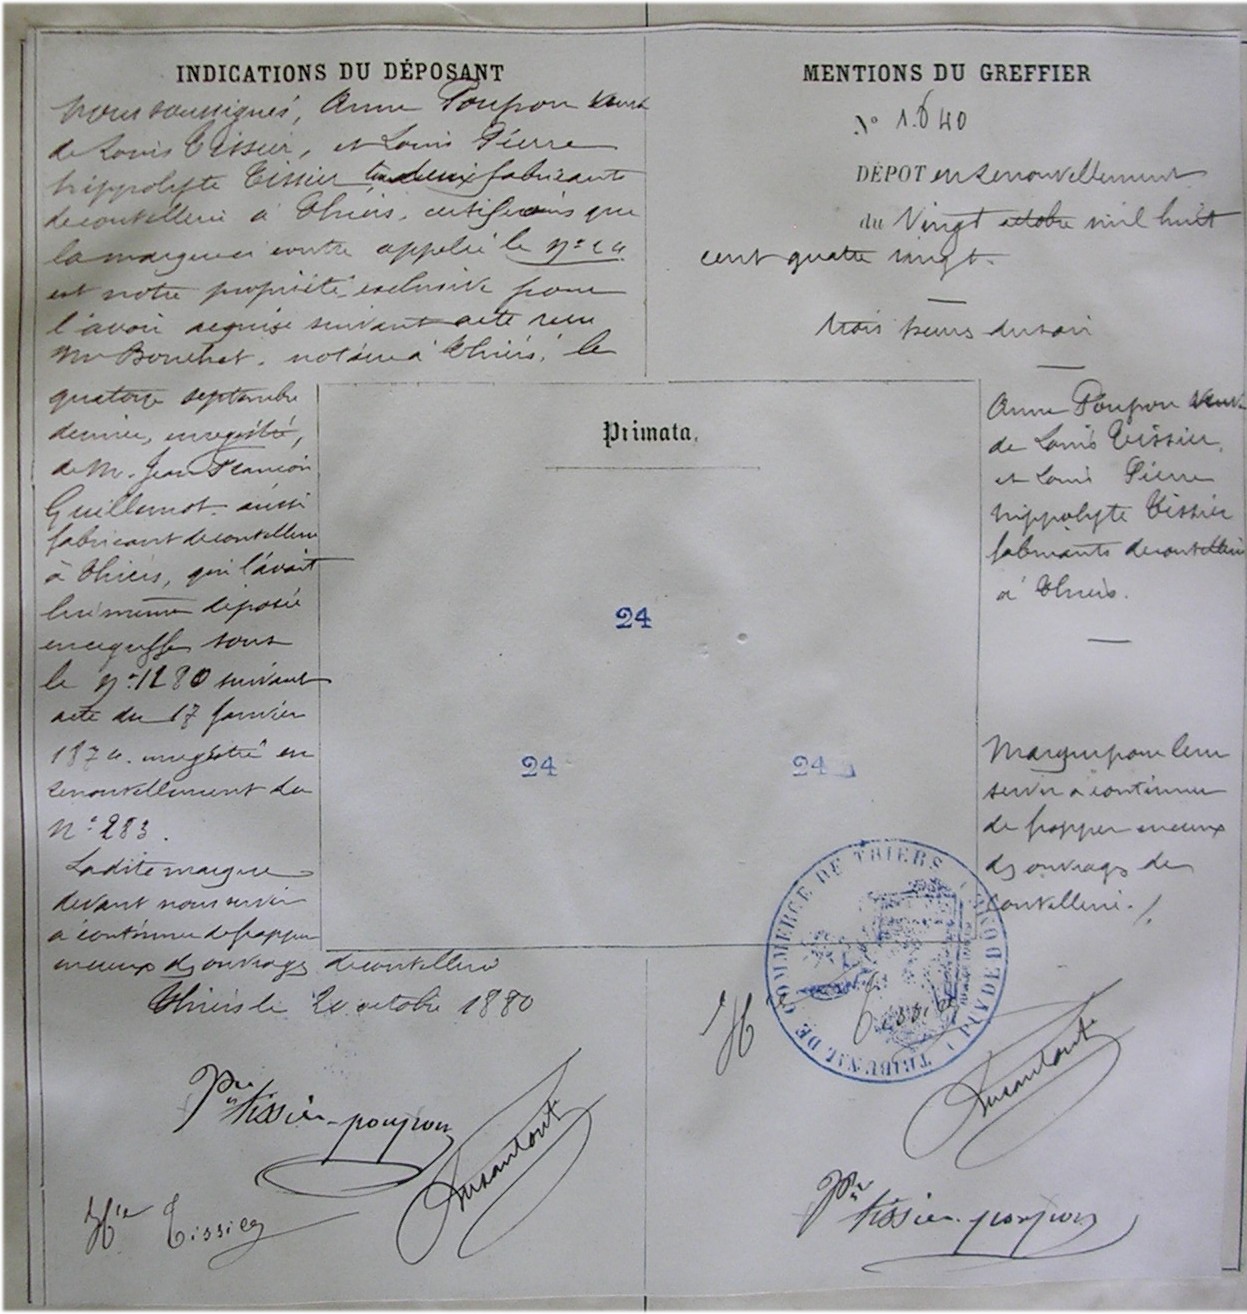 INDICATIONS DU DÉPOSANT
Nous soussignés, Anne Poupon veuve
de Louis Tissier, et Louis Pierre
hippolyte Tissier tous deux fabricants
de coutellerie à Thiers, certifions que
la marque ci contre appelée le N° 24
est notre propriété exclusive pour
l'avoir acquise suivant acte reçu
Me Bouchet, notaire à Thiers, le
quatorze septembre
dernier, enregistré,
de M. Jean
Guillemot aussi
fabricant de coutellerie
à Thiers, qui l'avait
lui même déposée
en ce greffe sous
le N° 1280 suivant
acte du 17 Janvier
1874. enregistré en
renouvellement du
N° 283.
Ladite marque
devant nous servir
à continuer de frapper
en creux des ouvrages de coutellerie
Thiers le 20 octobre 1880
Vve Tissier-poupon
Hte Tissier
MENTIONS DU GREFFIER
N° 1.640
DÉPOT en renouvellement
du Vingt octobre mil huit
cent quatre vingt.
trois heures du soir
Anne Poupon veuve
de Louis Tissier,
et Louis Pierre
hippolyte Tissier
fabricants de coutellerie
à Thiers.
Marque pour leur
servir à continuer
de frapper en creux
des ouvrages de
coutellerie./.
Primata.
24
24
24
TRIBUNAL DE COMMERCE DE THIERS
Hte Tissier
Vve Tissier-poupon